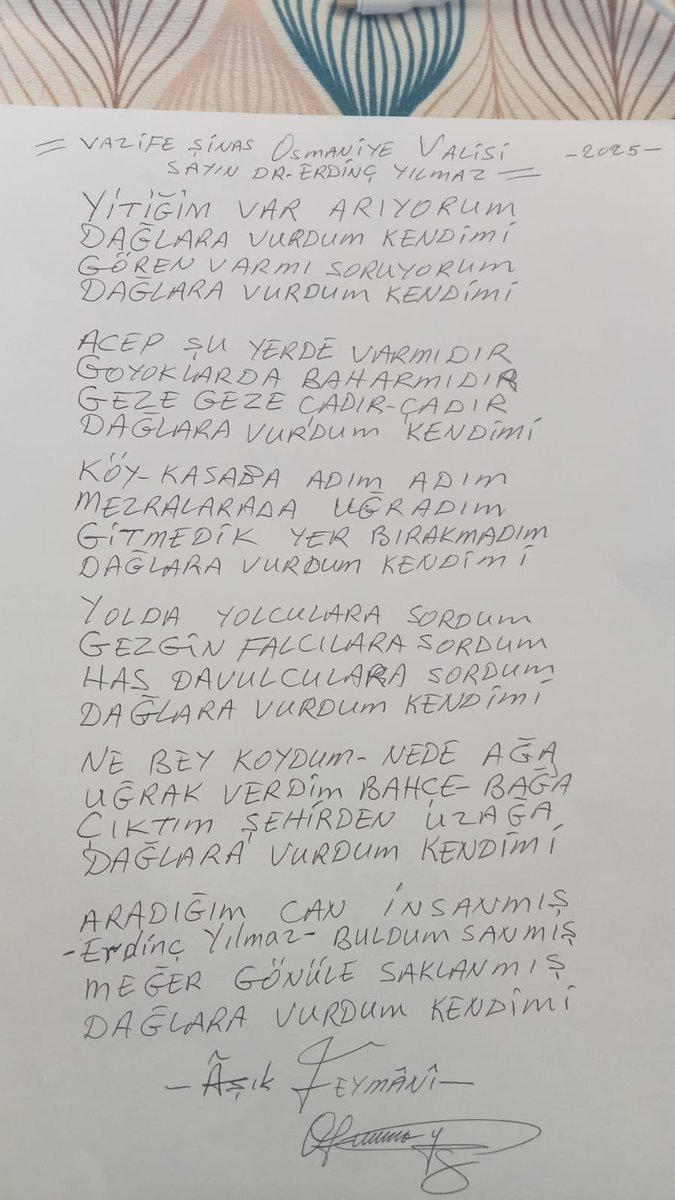 = VAZİFE ŞİNAS OSMANİYE VALİSİ -2025-
SAYIN DR-ERDİNÇ YILMAZ =
YİTİĞİM VAR ARIYORUM
DAĞLARA VURDUM KENDİMİ
GÖREN VARMI SORUYORUM
DAĞLARA VURDUM KENDİMİ
ACEP ŞU YERDE VARMIDIR
GOYOKLARDA BAHARMIDIR
GEZE GEZE ÇADIR-ÇADIR
DAĞLARA VURDUM KENDİMİ
KÖY-KASABA ADIM ADIM
MEZRALARADA UĞRADIM
GİTMEDİK YER BIRAKMADIM
DAĞLARA VURDUM KENDİMİ
YOLDA YOLCULARA SORDUM
GEZGİN FALCILARA SORDUM
HAS DAVULCULARA SORDUM
DAĞLARA VURDUM KENDİMİ
NE BEY KOYDUM- NEDE AĞA
UĞRAK VERDİM BAHÇE-BAĞA
ÇIKTIM ŞEHİRDEN UZAĞA
DAĞLARA VURDUM KENDİMİ
ARADIĞIM CAN İNSANMIŞ
-Erdinç Yılmaz- BULDUM SANMIŞ
MEĞER GÖNÜLE SAKLANMIŞ
DAĞLARA VURDUM KENDİMİ
-Âşık FEYMÂNÎ-